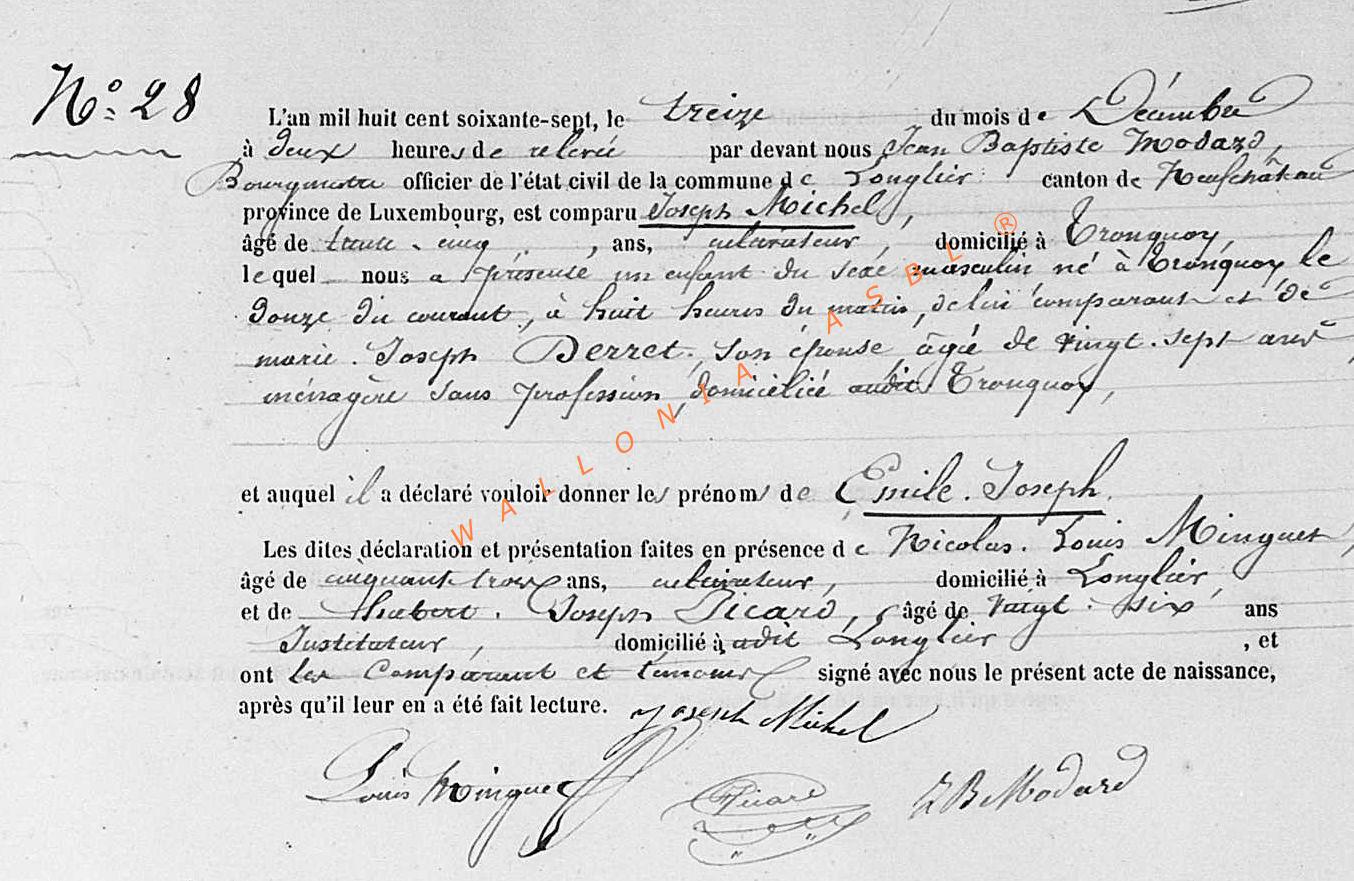 N° 28
L'an mil huit cent soixante-sept, le treize du mois de Décembre
à deux heures de relevée par devant nous Jean Baptiste Modard,
Bourgmestre officier de l'état civil de la commune de Longlier canton de Neufchâteau
province de Luxembourg, est comparu Joseph Michel,
âgé de trente-cinq, ans, cultivateur, domicilié à Tronquoy,
lequel nous a présenté un enfant du sexe masculin né à Tronquoy le
douze du courant, à huit heures du matin, de lui comparant et de
marie-Joseph Derret, son épouse âgée de vingt-sept ans,
ménagère sans profession, domiciliée audit Tronquoy,
et auquel il a déclaré vouloir donner les prénoms de Emile-Joseph.
Les dites déclaration et présentation faites en présence de Nicolas-Louis Minguet,
âgé de cinquante trois ans, cultivateur, domicilié à Longlier
et de hubert-Joseph Picard, âgé de vingt-six ans
Instituteur, domicilié à adit Longlier, et
ont les Comparant et témoins signé avec nous le présent acte de naissance,
après qu'il leur en a été fait lecture. Joseph Michel
Louis Minguet Picard JB Modard
WALLONIA ASBL ®